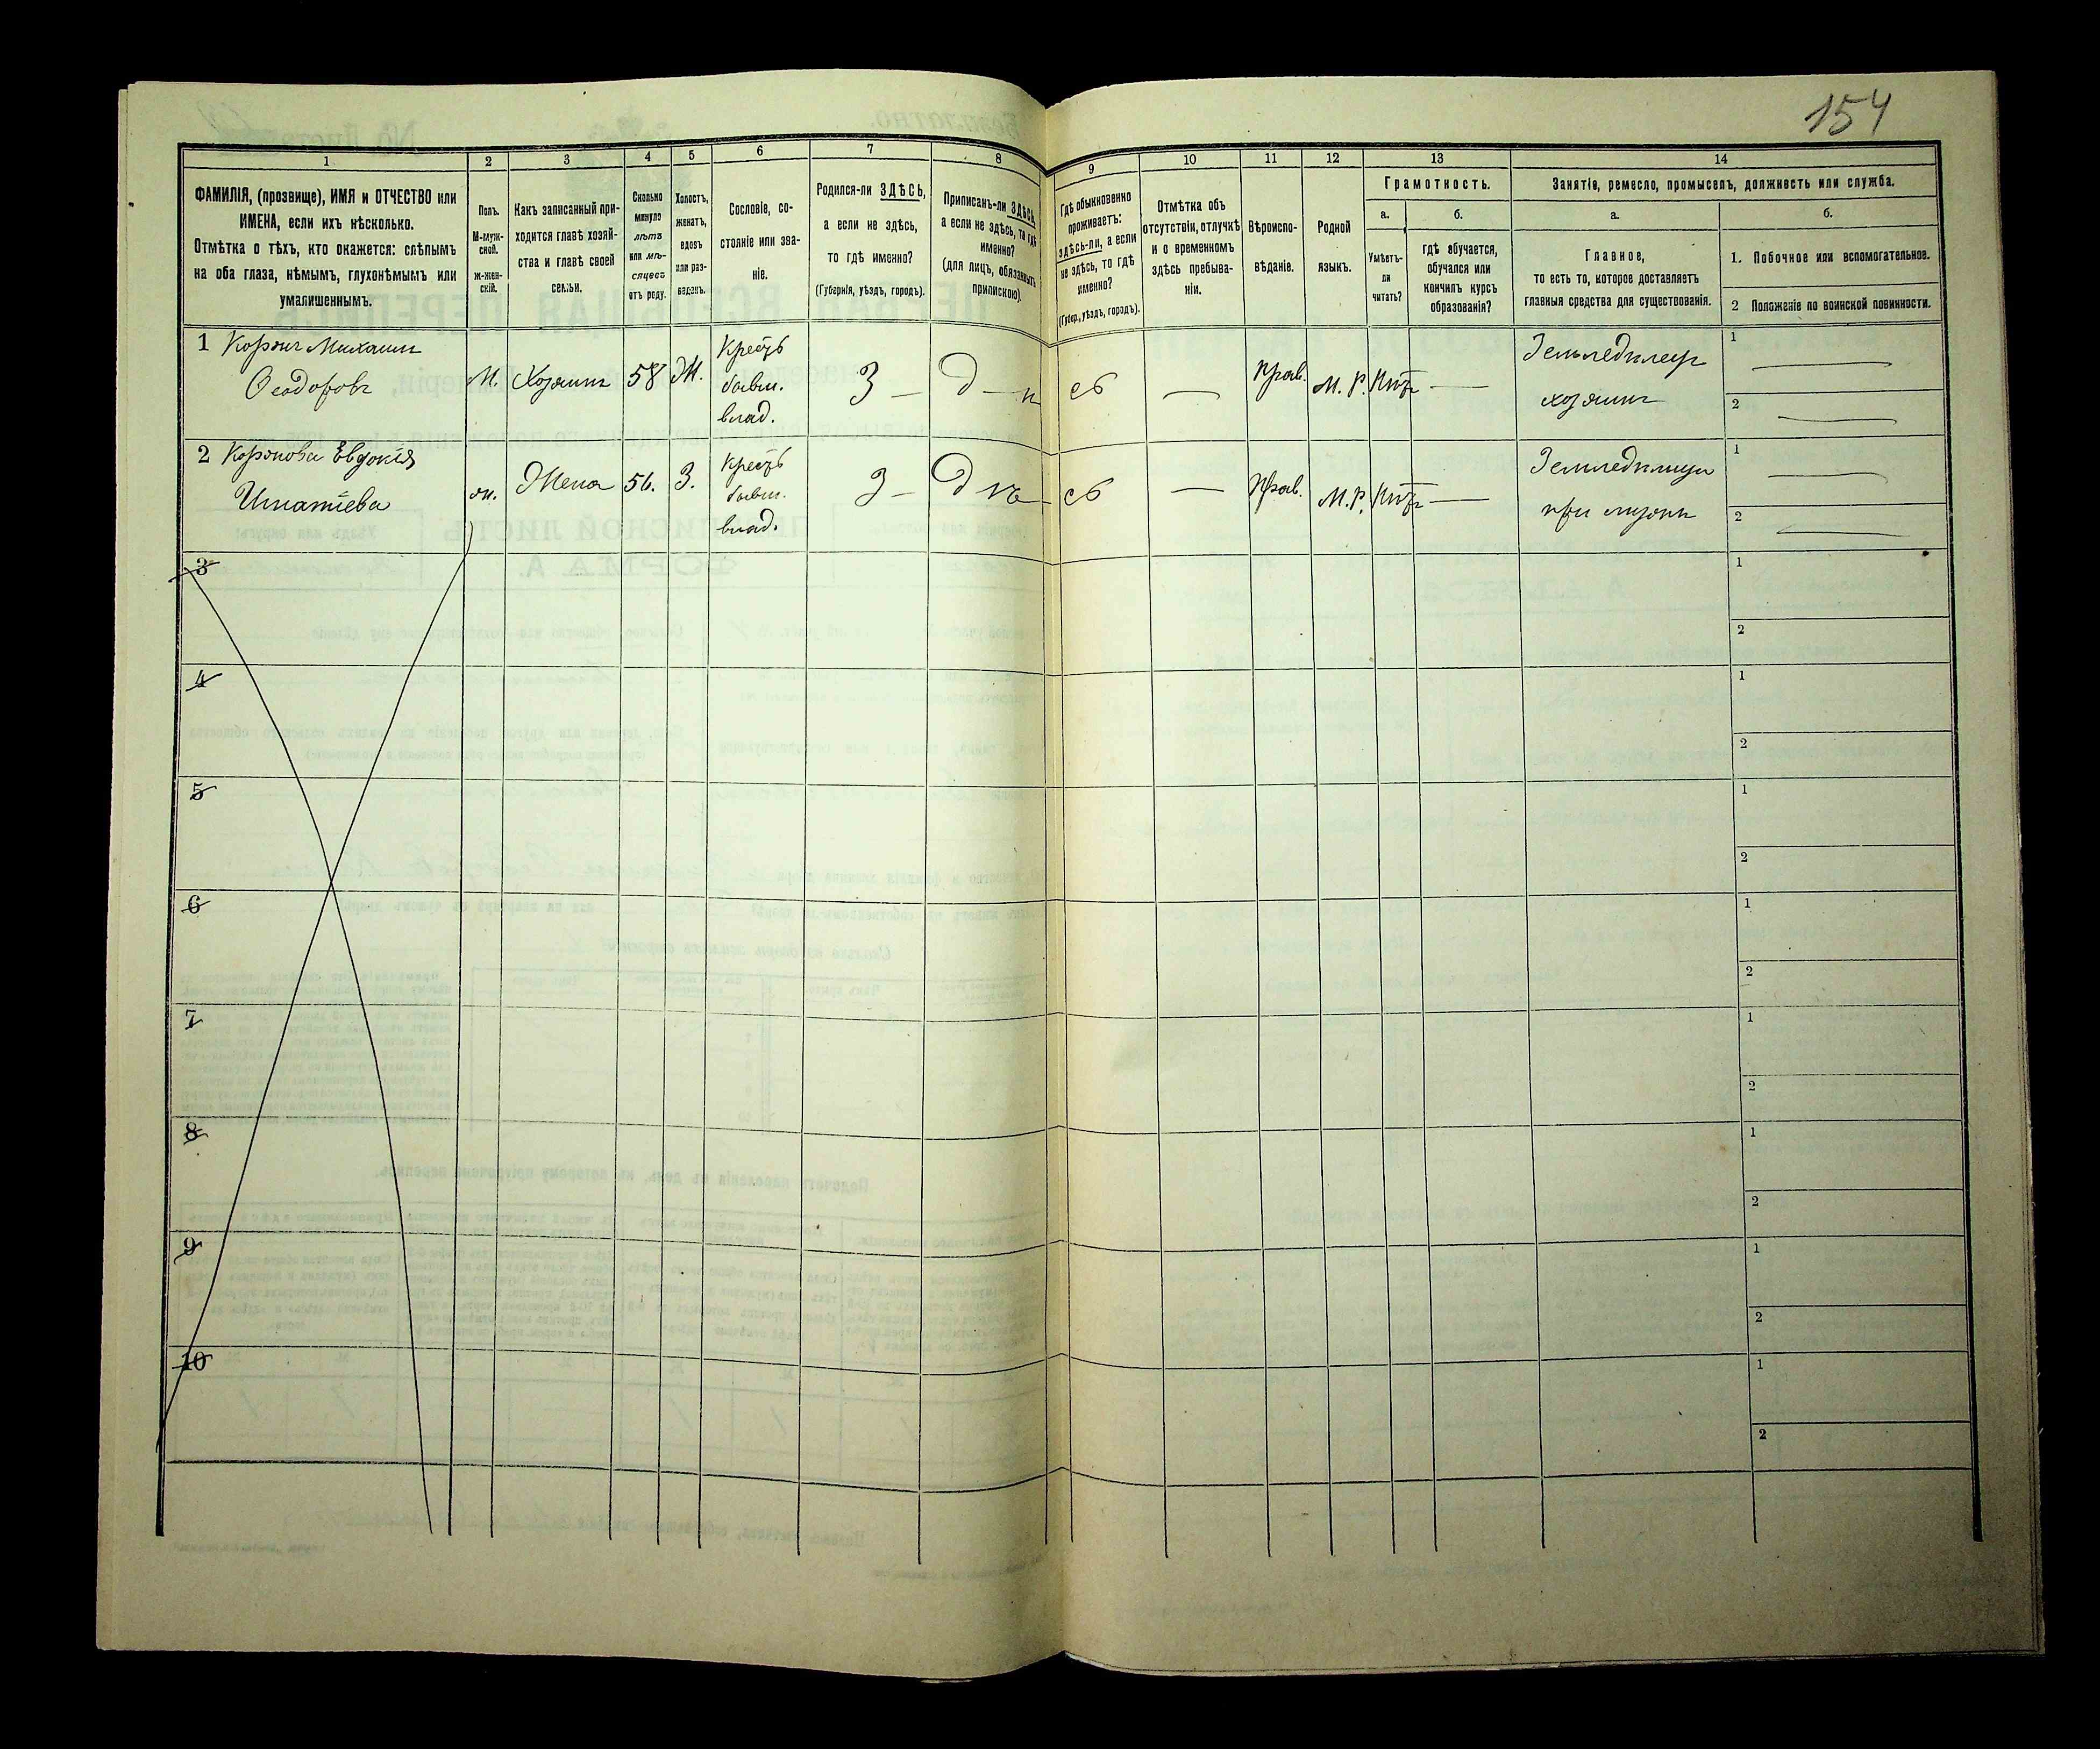 154
1 2 3 4 5 6 7 8 9 10 11 12 13 14
ФАМИЛІЯ, (прозвище), ИМЯ и ОТЧЕСТВО или
ИМЕНА, если ихъ нѣсколько.
Отмѣтка о тѣхъ, кто окажется: слѣпымъ
на оба глаза, нѣмымъ, глухонѣмымъ или
умалишеннымъ.
Полъ.
М-муж-
ской.
ж-жен-
скій.
Какъ записанный при-
ходится главѣ хозяй-
ства и главѣ своей
семьи.
Сколько
минуло
лѣтъ
или мѣ-
сяцевъ
отъ роду.
Холостъ,
женатъ,
вдовъ
или раз-
веденъ.
Сословіе, со-
стояніе или зва-
ніе.
Родился-ли ЗДѢСЬ,
а если не здѣсь,
то гдѣ именно?
(Губернія, уѣздъ, городъ).
Приписанъ-ли ЗДѢСЬ,
а если не здѣсь, то гдѣ
именно?
(для лицъ, обязанныхъ
припискою).
Гдѣ обыкновенно
проживаетъ:
здѣсь-ли, а если
не здѣсь, то гдѣ
именно?
(Губер., уѣздъ, городъ).
Отмѣтка объ
отсутствіи, отлучкѣ
и о временномъ
здѣсь пребыва-
ніи.
Вѣроиспо-
вѣданіе.
Родной
языкъ.
Грамотность.
а. б.
Умѣетъ-
ли
читать?
гдѣ обучается,
обучался или
кончилъ курсъ
образованія?
Занятіе, ремесло, промыселъ, должность или служба.
а. б.
Главное,
то есть то, которое доставляетъ
главныя средства для существованія.
1. Побочное или вспомогательное.
2 Положеніе по воинской повинности.
1 Михаилъ
Ѳеодоровъ
М. Хозяинъ 58 Ж.
Крест
бывш.
влад.
З —
—
Прав. М. Р.
—
хозяинъ
1 —
2 —
2 Евдокія
Игнатіева
ж. Жена 56. З.
Крест
бывш.
влад.
З —
—
Прав. М. Р.
—
при мужѣ
1 —
2 —
3
1
2
4
1
2
5
1
2
6
1
2
7
1
2
8
1
2
9
1
2
10
1
2